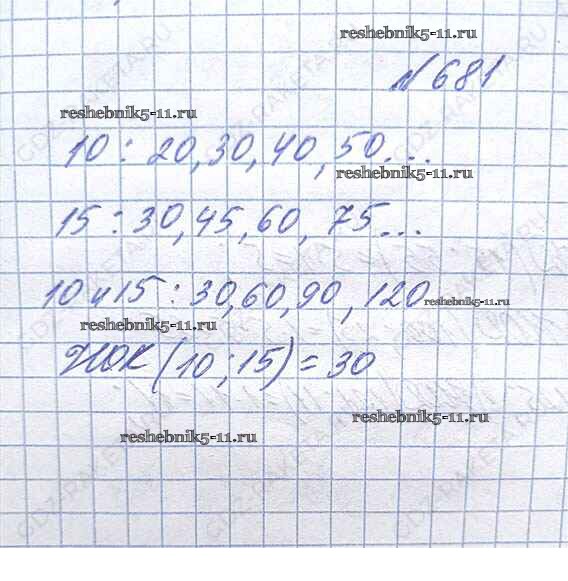 reshebnik5-11.ru
№681
reshebnik5-11.ru
10: 20, 30, 40, 50...
reshebnik5-11.ru
15: 30, 45, 60, 75...
10 и 15: 30, 60, 90, 120
reshebnik5-11.ru
reshebnik5-11.ru
НОК (10; 15) = 30
reshebnik5-11.ru
reshebnik5-11.ru
GDZ-RAKETA.RU